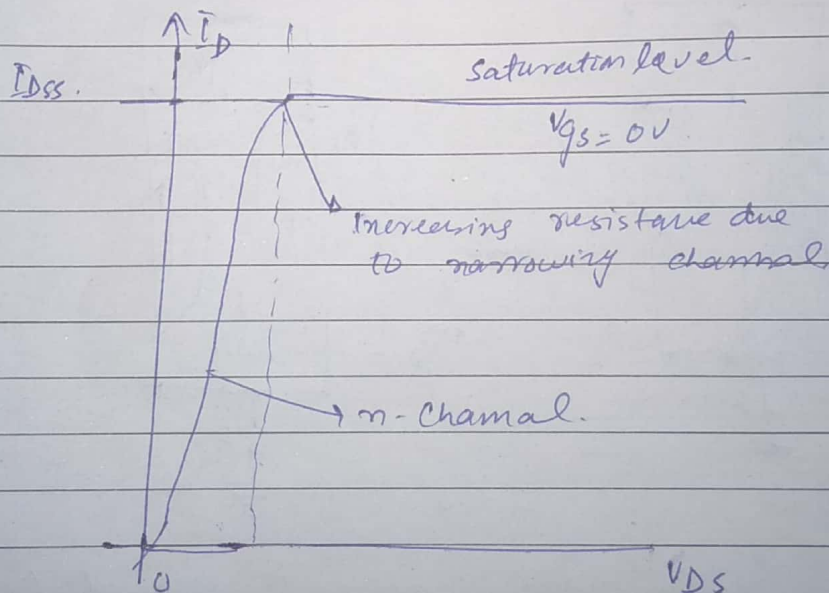 I_D
I_DSS.
Saturation level.
Vgs = 0V
Increasing resistance due
to narrowing channal
n-Channal.
0
V_DS